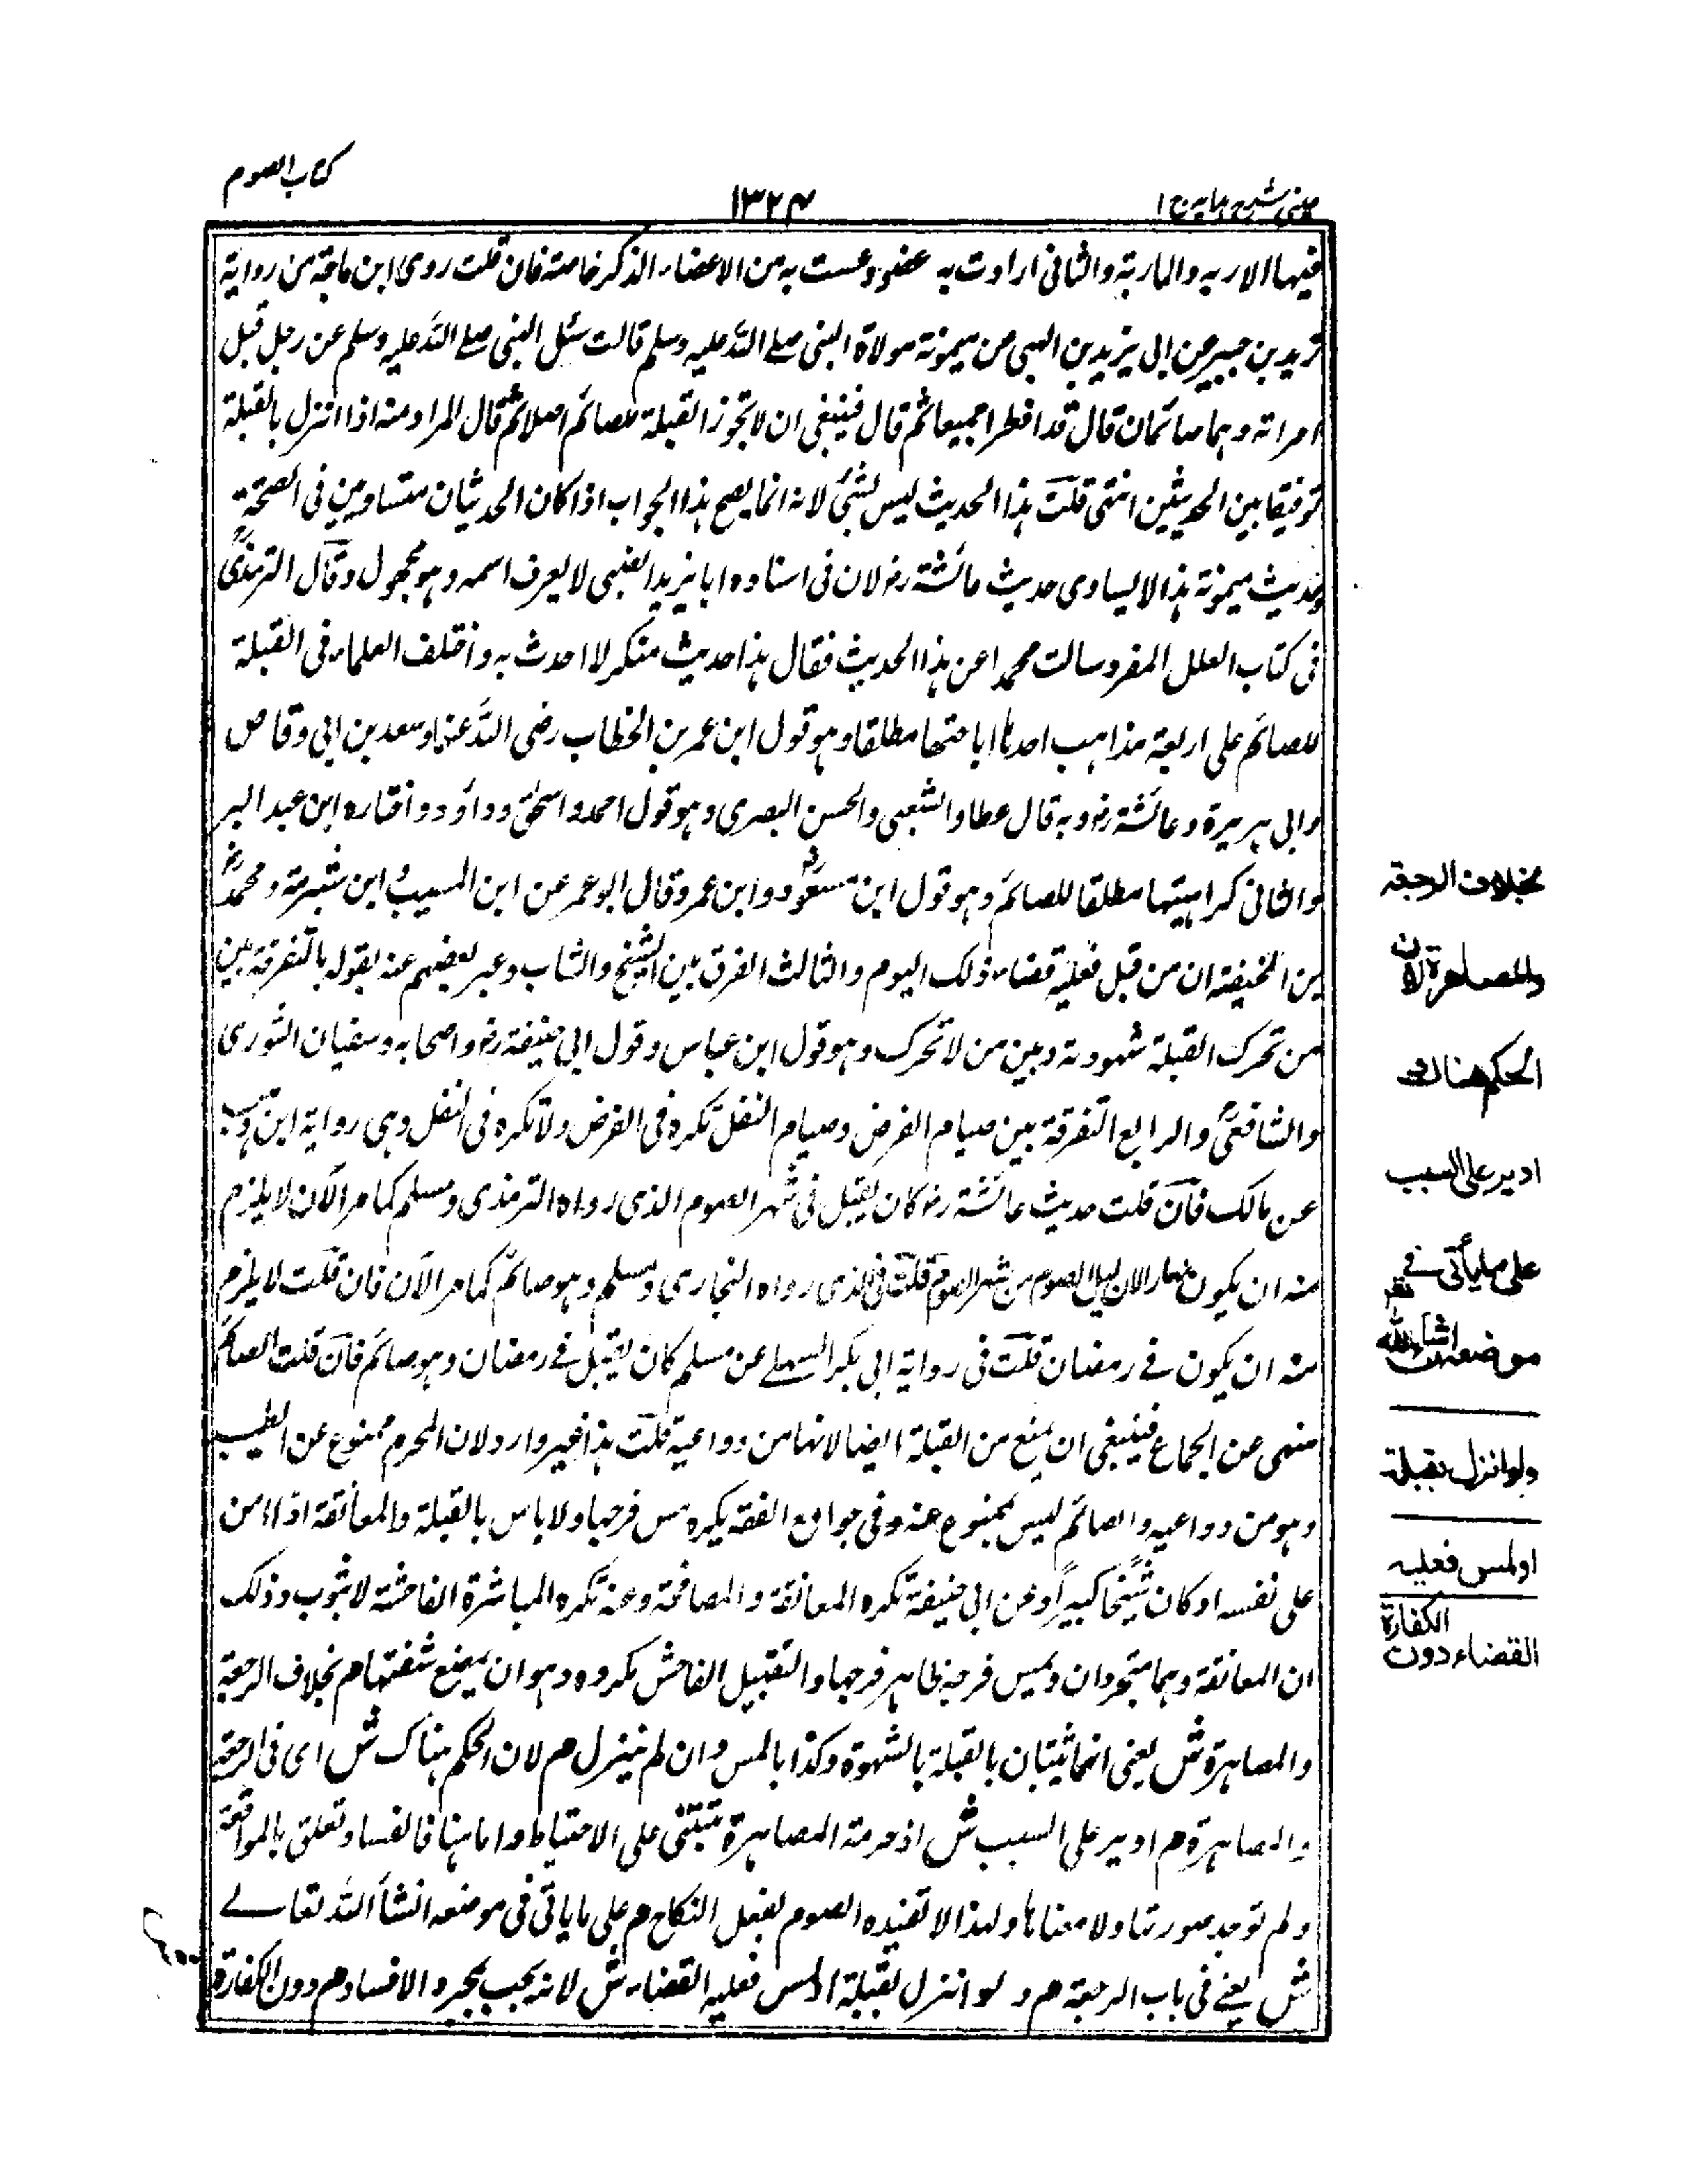 كتاب الصوم
١٣٢٤
عينى شرح هدايه ج ١
فيها الاربه والماربة والثانى ارادت به عضو وعست به من الاعضاء الذكر خاصة فان قلت روى ابن ماجة من رواية
زيد بن جبير عن ابى يزيد بن الهبى من ميمونة مولاة النبى صلے اللّٰه عليه وسلم قالت سئل النبى صلے اللّٰه عليه وسلم عن رجل قبل
امراته وهما صائمان قال قد افطرا جميعا ثم قال فينبغى ان لا تجوز القبلة للصائم اصلا ثم قال المراد منه اذا انزل بالقبلة
توفيقا بين الحديثين انتهى قلت هذا الحديث ليس بشئ لانه انما يصح هذا الجواب اذا كان الحديثان متساويين فى الصحة
وحديث ميمونة هذا لا يساوى حديث عائشة رض لان فى اسناده ابا يزيد الضبى لا يعرف اسمه وهو مجهول وقال الترمذى
فى كتاب العلل المفرد سالت محمدا عن هذا الحديث فقال هذا حديث منكر لا احدث به واختلف العلماء فى القبلة
للصائم على اربعة مذاهب احدها اباحتها مطلقا وهو قول ابن عمر بن الخطاب رضى اللّٰه عنهما وسعد بن ابى وقاص
وابى هريرة وعائشة رض وبه قال عطا والشعبى والحسن البصرى وهو قول احمد واسحٰق وداؤد واختاره ابن عبد البر
والثانى كراهيتها مطلقا للصائم وهو قول ابن مسعود وابن عمر وقال ابو عمر عن ابن المسيب وابن شبرمة ومحمد
بن الحنيفة ان من قبل فعليه قضاء ذلك اليوم والثالث الفرق بين الشيخ والشاب وعبر بعضهم عنه بقوله بالتفرقة بين
من تحرك القبلة شهوته وبين من لا تحرك وهو قول ابن عباس وقول ابى حنيفة رض واصحابه وسفيان الثورى
والشافعى والرابع التفرقة بين صيام الفرض وصيام النفل تكره فى الفرض ولا تكره فى النفل وهى رواية ابن وهب
عن مالك فان قلت حديث عائشة رض كان يقبل فى شهر الصوم الذى رواه الترمذى ومسلم كما مر الآن لا يلزم
منه ان يكون نهارا لان ليل الصوم من شهر الصوم قلت فى الذى رواه البخارى ومسلم وهو صائم كما مر الآن فان قلت لا يلزم
منه ان يكون فے رمضان قلت فى رواية ابى بكر السهلے عن مسلم كان يقبل فے رمضان وهو صائم فان قلت الصائم
منهى عن الجماع فينبغى ان يمنع من القبلة ايضا لانها من دواعيه قلت هذا غير وارد لان المحرم ممنوع عن الطيب
وهو من دواعيه والصائم ليس بممنوع عنه وفى جوامع الفقه يكره مس فرجها ولا باس بالقبلة والمعانقة اذا امن
على نفسه او كان شيخا كبيرا وعن ابى حنيفة تكره المعانقة والمصافحة وعنه تكره المباشرة الفاحشة لا بثوب وذلك
ان المعانقة وهما متجردان ويمس فرجه ظاهر فرجها والتقبيل الفاحش مكروه وهو ان يمضغ شفتها م بخلاف الرجعة
والمصاهرة ش يعنى انهما يثبتان بالقبلة بالشهوة وكذا بالمس وان لم ينزل م لان الحكم هناك ش اى فى الرجعة
والمصاهرة م ادير على السبب ش اذ حرمة المصاهرة تبتنى على الاحتياط واما هنا فالفساد تعلق بالمواقعة
ولم توجد صورتا ولا معناها ولهذا لا تفسده الصوم بفعل النكاح م على ما ياتى فى موضعه انشأ اللّٰه تعالے
ش يعنے فى باب الرجعة م ولو انزل بقبلة اولمس فعليه القضاء ش لانه يجب بمجرد الافساد م دون الكفارة
بخلاف الرجعة
والمصاهرة لان
الحكم هناك
ادير على السبب
على ما يأتى فے
موضعه ان شاء الله
ولو انزل بقبلة
اولمس فعليه
القضاء دون الكفارة